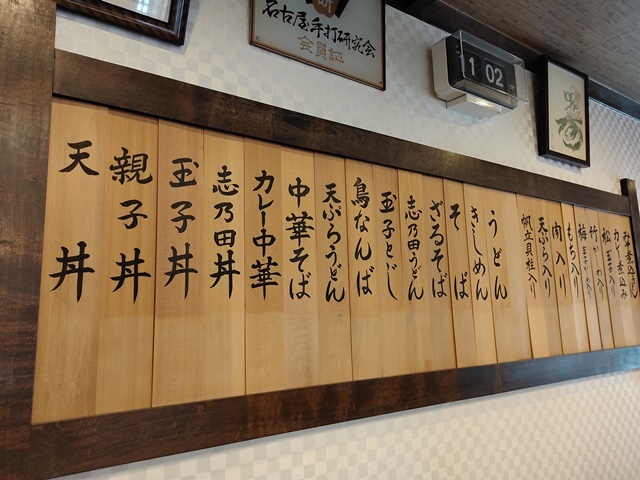 名古屋手打研究会
会員証
1 02
みそ煮込み
カレー煮込み
松 玉子入り
竹
梅
もち入り
肉入り
天ぷら入り
帆立貝柱入り
うどん
きしめん
そば
ざるそば
志乃田うどん
玉子とじ
鳥なんば
天ぷらうどん
中華そば
カレー中華
志乃田丼
玉子丼
親子丼
天丼